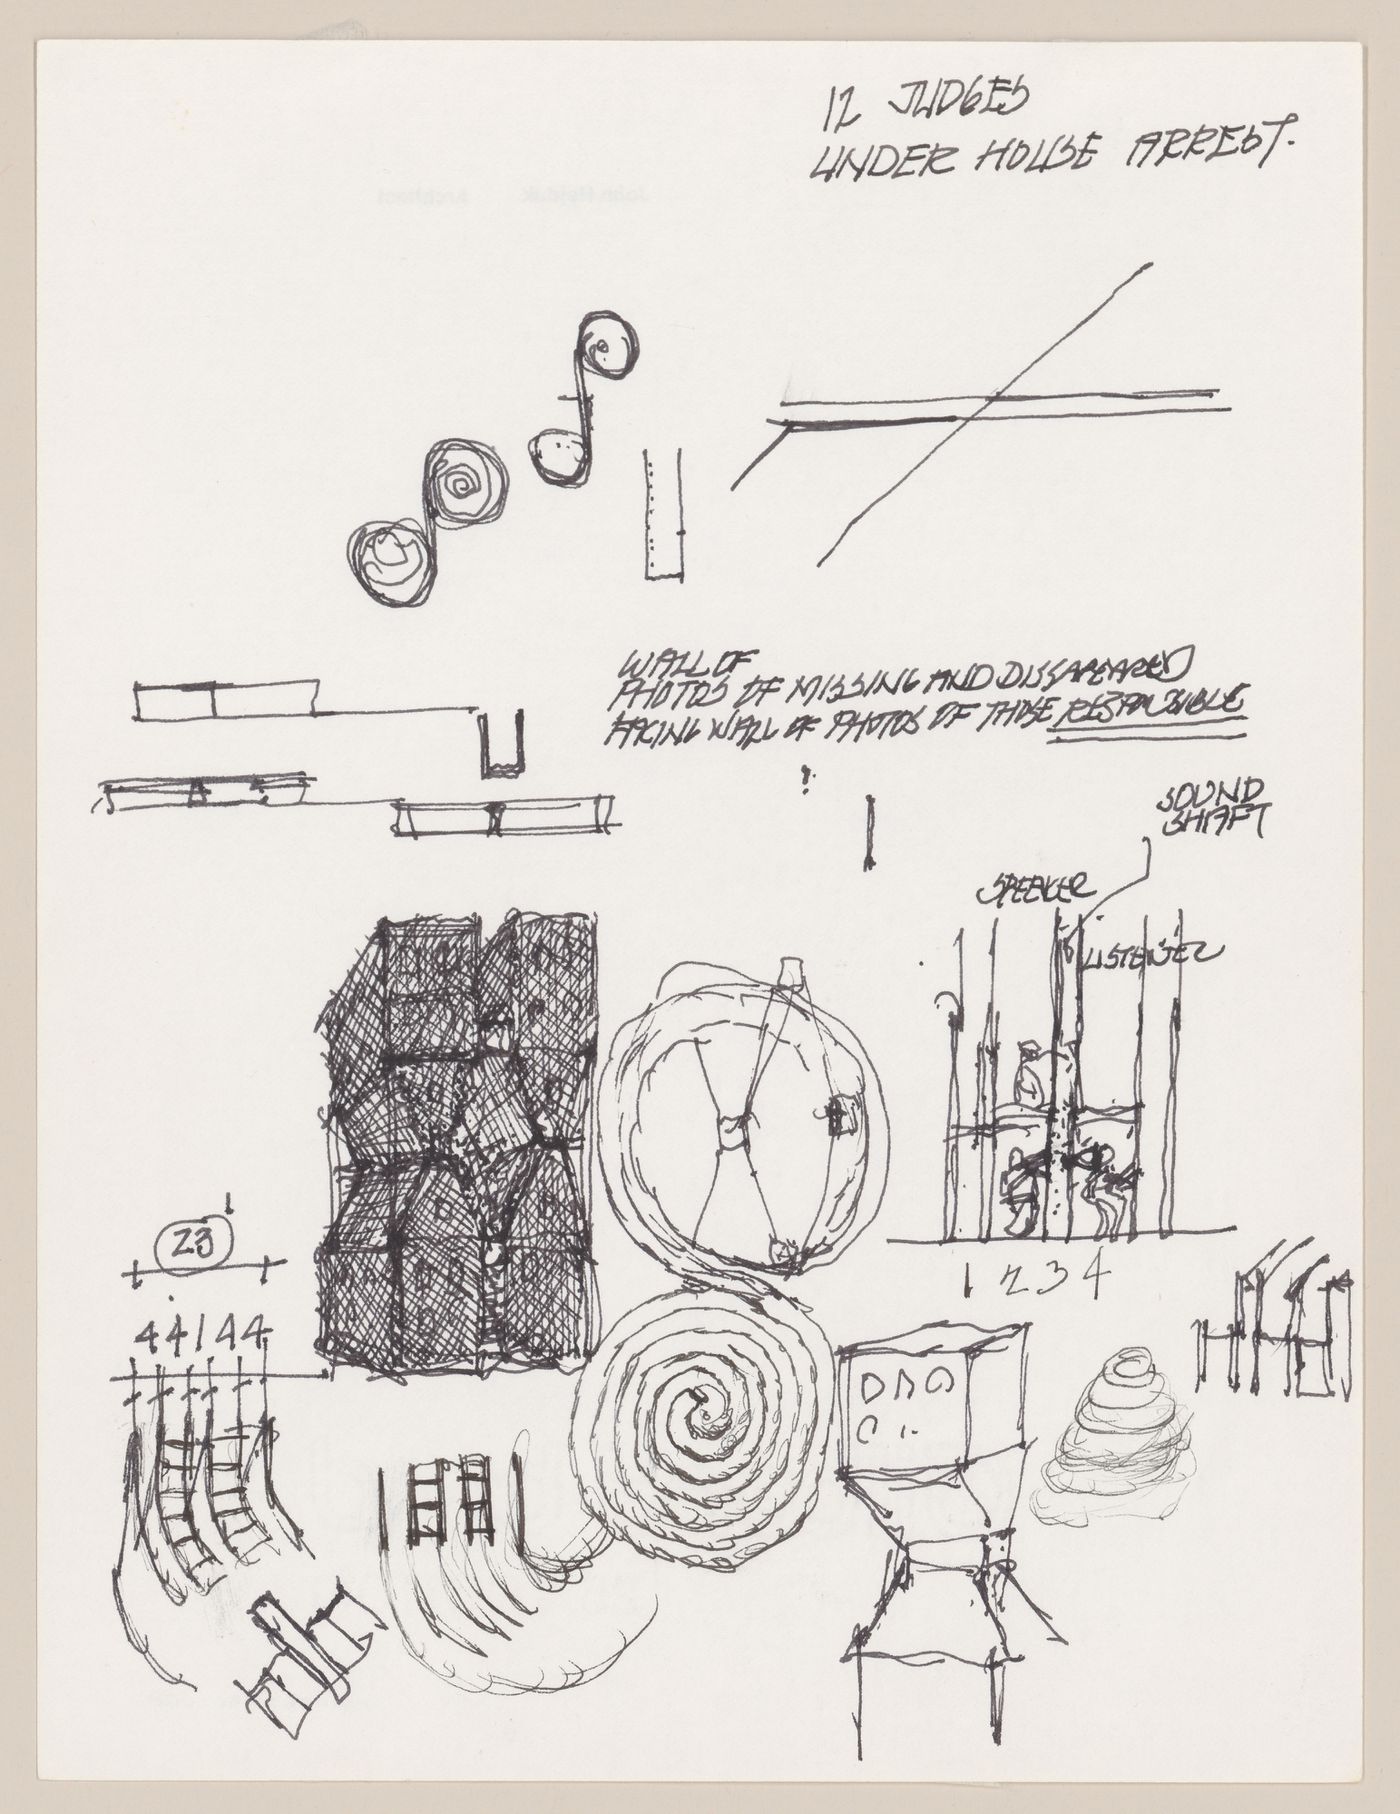 12 JUDGES
UNDER HOUSE ARREST.
WALL OF
PHOTOS OF MISSING AND DISSAPEARED
FACING WALL OF PHOTOS OF THOSE RESPONSIBLE
SOUND
SHAFT
SPEAKER
LISTENER
1 2 3 4
23
4 4 1 4 4
John Hejduk Architect